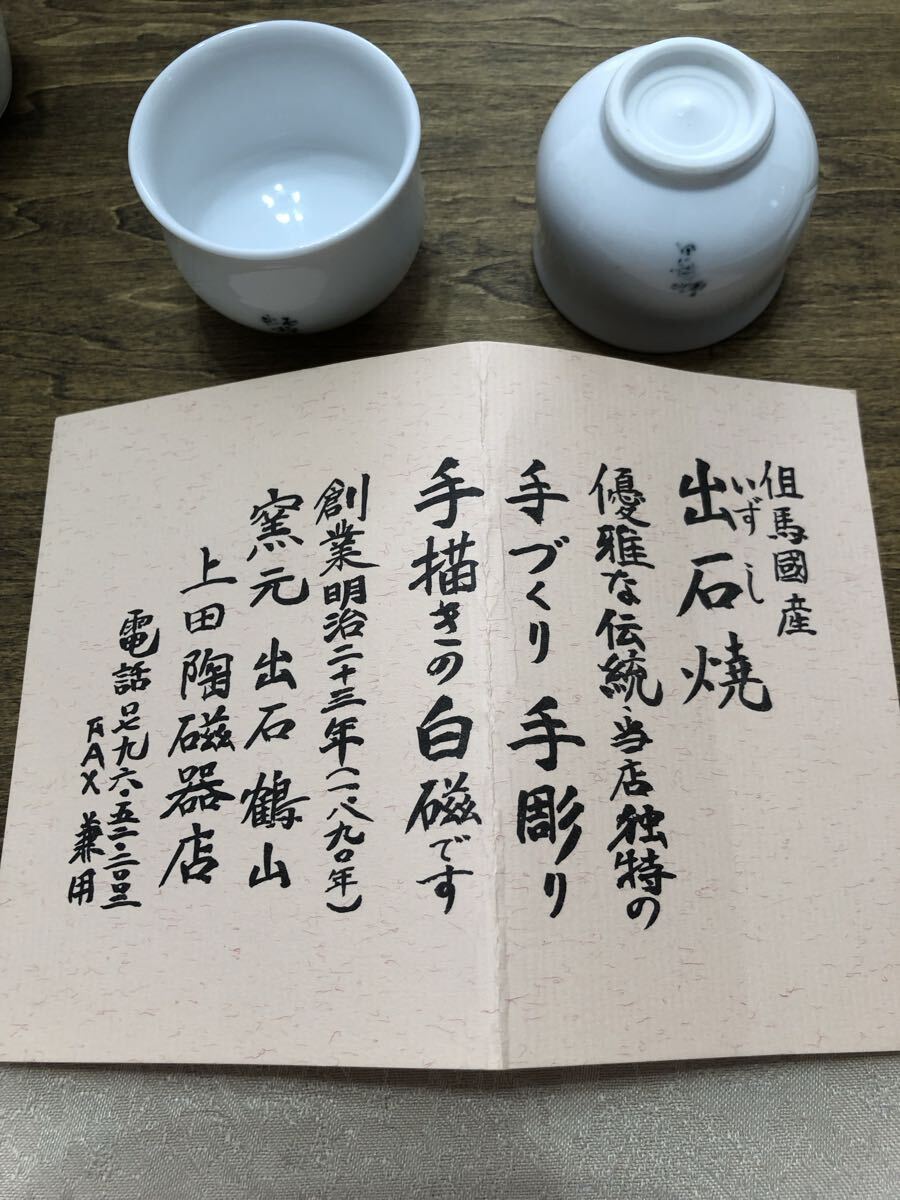 但馬國産
いずし
出石焼
優雅な伝統、当店独特の
手づくり 手彫り
手描きの白磁です
創業明治二十三年(一八九〇年)
窯元 出石鶴山
上田陶磁器店
電話〇七九六・五二・二〇三三
FAX兼用